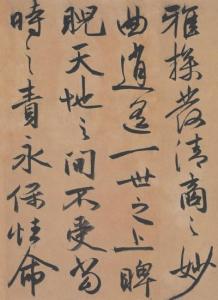 雅操發清商之妙
曲逍遥一世之上睥
睨天地之間不受當
時之責永保性命